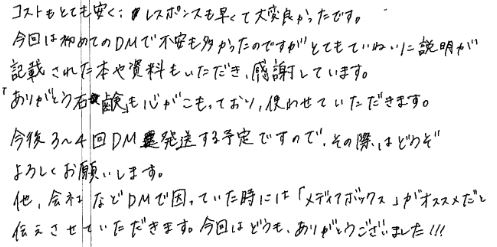 コストもとても安く、レスポンスも早くて大変良かったです。
今回は初めてのDMで不安も多かったのですがとてもていねいに説明が
記載された本や資料もいただき、感謝しています。
「ありがとう石鹸」も心がこもっており、使わせていただきます。
今後3〜4回DM発送する予定ですので、その際はどうぞ
よろしくお願いします。
他、会社などDMで困っていた時には「メディアボックス」がオススメだと
伝えさせていただきます。今回はどうも、ありがとうございました!!!